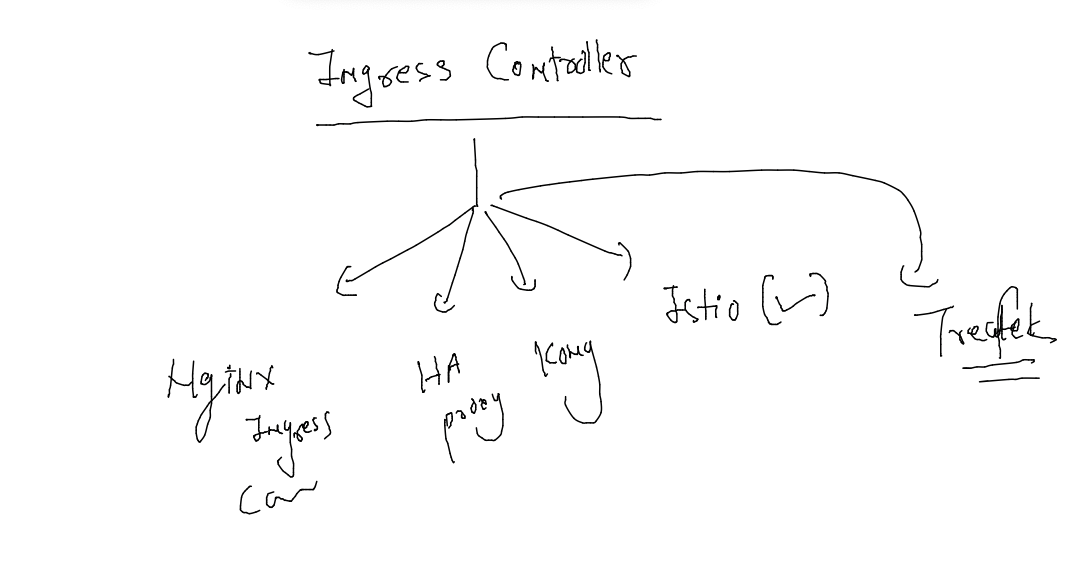 Ingress Controller
Nginx
Ingress
Con
HA
proxy
Kong
Istio (✓)
Treafek